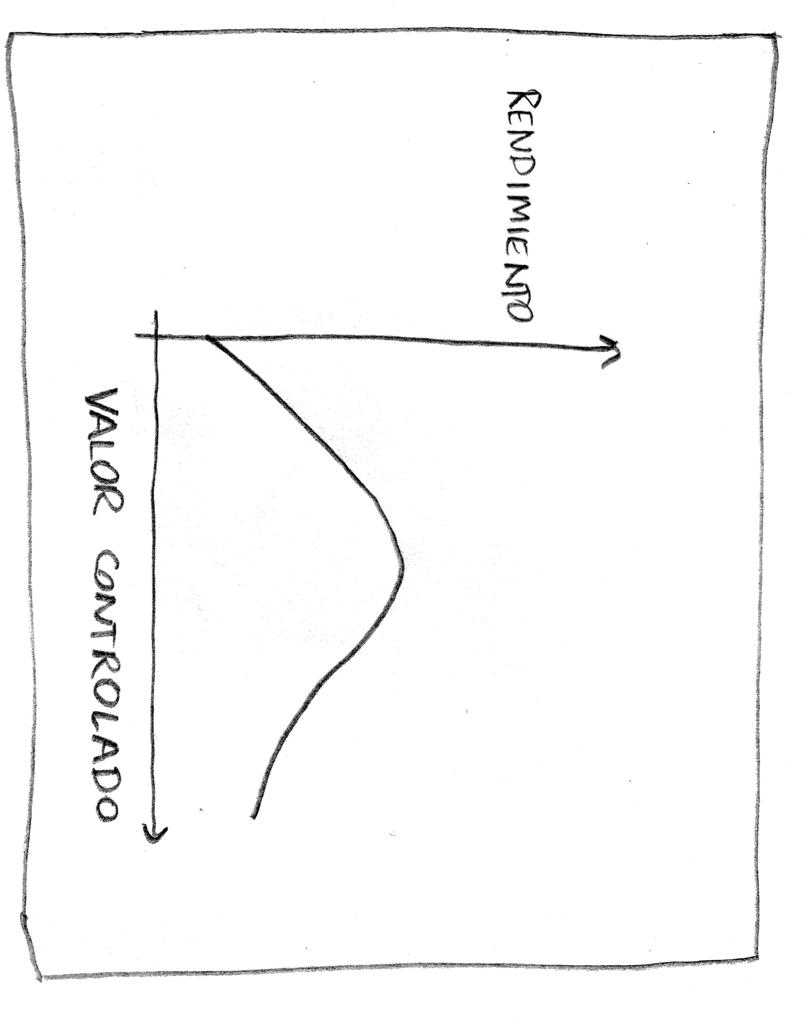 RENDIMIENTO
VALOR CONTROLADO